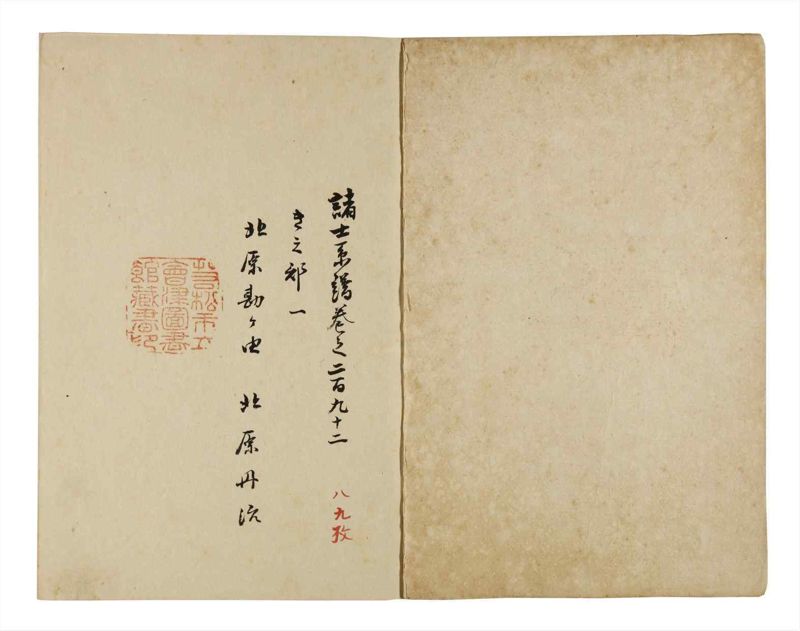 諸士系譜巻之二百九十二
八九枚
きノ部 一
北原勘ヶ由 北原丹流
若松市立
會津圖書
館藏書印